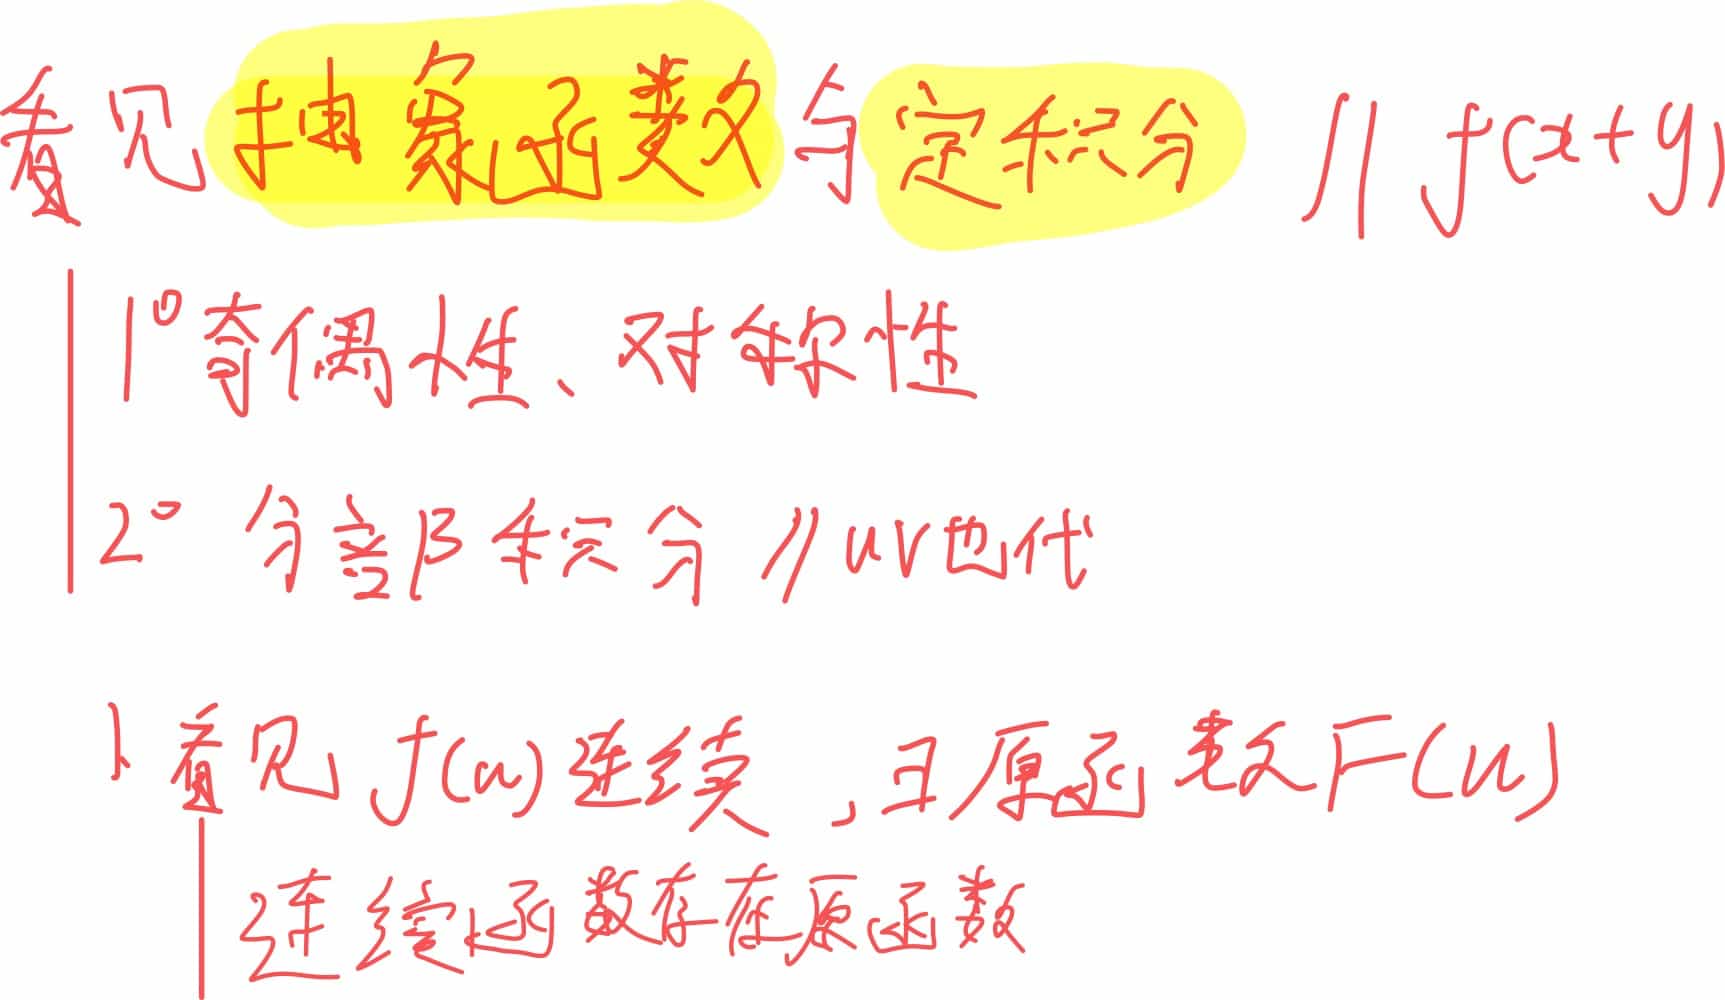 看见抽象函数与定积分 // f(x+y)
1° 奇偶性、对称性
2° 分部积分 // uv也代
1、看见 f(u) 连续,彐原函数F(u)
连续函数存在原函数